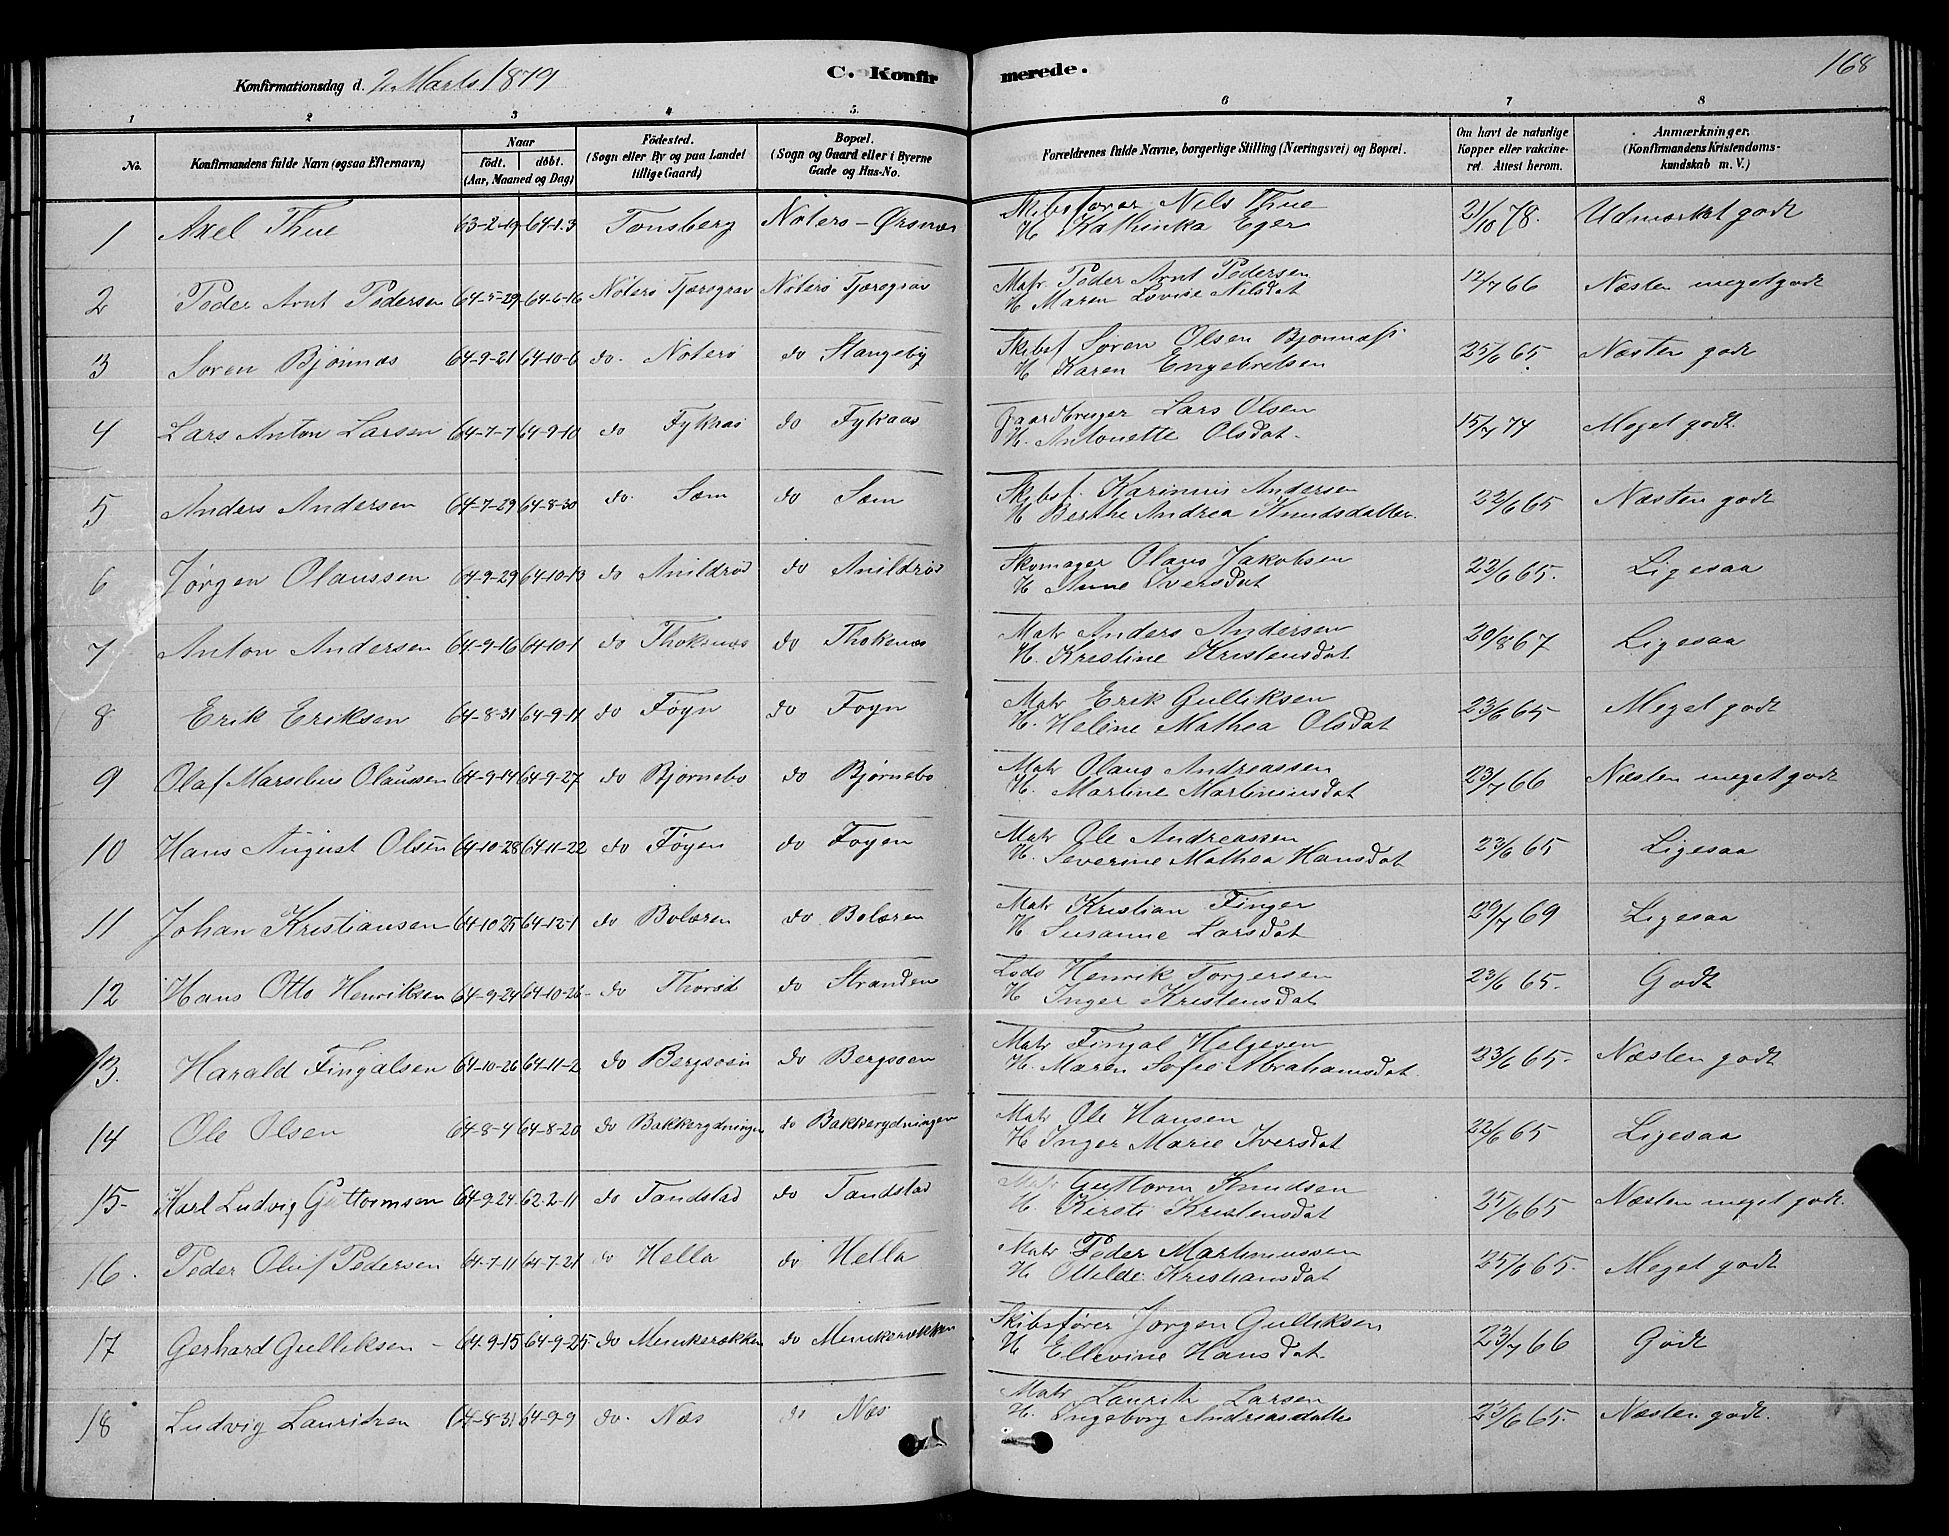 Konfirmationsdag d. 2 Marts 1879
C. Konfirmerede.
168
1 2 3 4 5. 6 7 8
No.
Konfirmandens fulde Navn (ogsaa Efternavn)
Naar
födt. döbt.
(Aar, Maaned og Dag)
Födested.
(Sogn eller By og paa Landet
tillige Gaard)
Bopæl.
(Sogn og Gaard eller i Byerne
Gade og Hus-No.
Forældrenes fulde Navne, borgerlige Stilling (Næringsvei) og Bopæl.
Om havt de naturlige
Kopper eller vakcine-
ret. Attest herom.
Anmærkninger.
(Konfirmandens Kristendoms-
kundskab m. V.)
1 Axel Thue 63-2-19 64-1-3 Tønsberg Nøterø - Ørsnæs Skibsfører Nils Thue 21/10 78. Udmærket godt
H Kathinka Eger
2 Peder Arnt Pedersen 64-5-29 64-6-16 Nøterø Tjærsgrav Nøterø Tjærsgrav Matr Peder Arnt Pedersen 12/7 66 Næsten meget godt
H Maren Lovise Nilsdat
3 Søren Bjønnes 64-9-21 64-10-6 do. Nøterø do Stangeby Skibsf Søren Olsen Bjønnæss 25/6 65 Næsten godt
H Karen Engebretsen
4 Lars Anton Larsen 64-7-7 64-9-10 do Fykaas do Fykaas Gaardbruger Lars Olsen 15/7 77 Meget godt
H. Antonette Olsdat.
5 Anders Andersen 64-7-29 64-8-30 do. Sæm do Sæm Skibsf. Karinius Andersen 22/6 65 Næsten godt
H Berthe Andrea Knudsdatter
6 Jørgen Olaussen 64-9-29 64-10-13 do Anildrød do Anildrød Skomager Olaus Jakobsen 22/6 65. Ligesaa
H Anne Iversdat
7 Anton Andersen 64-9-16 64-10-1 do Thoknæs do Thokenæs Matr Anders Andersen 20/8 67 Ligesaa
H. Kristine Kristensdat
8 Erik Eriksen 64-8-31 64-9-11 do Føyn do Føyn Matr Erik Gulliksen 23/6 65 Meget godt
H. Heline Mathea Olsdat
9 Olaf Marselius Olaussen 64-9-14 64-9-27 do Bjørnebo do Bjørnebo Matr Olaus Andreassen 23/7 66 Næsten meget godt
H. Martine Martiniusdat
10 Hans August Olsen 64-10-28 64-11-22 do Føyen do Føyen Matr Ole Andreassen 23/6 65 Ligesaa
H. Severine Mathea Hansdat
11 Johan Kristiansen 64-10-25 64-12-1 do Bolæren do Bolæren Matr Kristian Finger 29/7 69 Ligesaa
H Susanne Larsdat
12 Hans Otto Henriksen 64-9-24 64-10-26 do Thorød do Stranden Lods Henrik Torgersen 23/6 65. Godt
H Inger Kristensdat
13. Harald Fingalsen 64-10-26 64-11-2 do Bergsøen do Bergsøen Matr Fingal Helgesen 23/6 65. Næsten godt
H. Maren Sofie Abrahamsdat
14 Ole Olsen 64-8-4 64-8-20 do Bakkerydningen do Bakkerydningen Matr Ole Hansen 22/6 65 Ligesaa
H Inger Marie Iversdat
15 Karl Ludvig Guttormsen 64-9-24 62-2-11 do Tandstad do Tandstad Matr Guttorm Knudsen 25/6 65 Næsten meget godt.
H. Kirsti Kristensdat
16. Peder Oluf Pedersen 64-7-11 64-7-21 do Hella do Hella Matr Peder Martiniussen 25/6 65. Meget godt
H. Otilde Kristiansdat
17 Gerhard Gulliksen 64-9-15 64-9-25 do Menkerækken do Menkerækken Skibsfører Jørgen Gulliksen 23/7 66 Godt
H Ellevine Hansdat
18 Ludvig Lauritzen 64-8-31 64-9-9 do. Næs do Næs Matr Lauritz Larsen 23/6 65. Næsten godt.
H. Ingeborg Andreasdatter